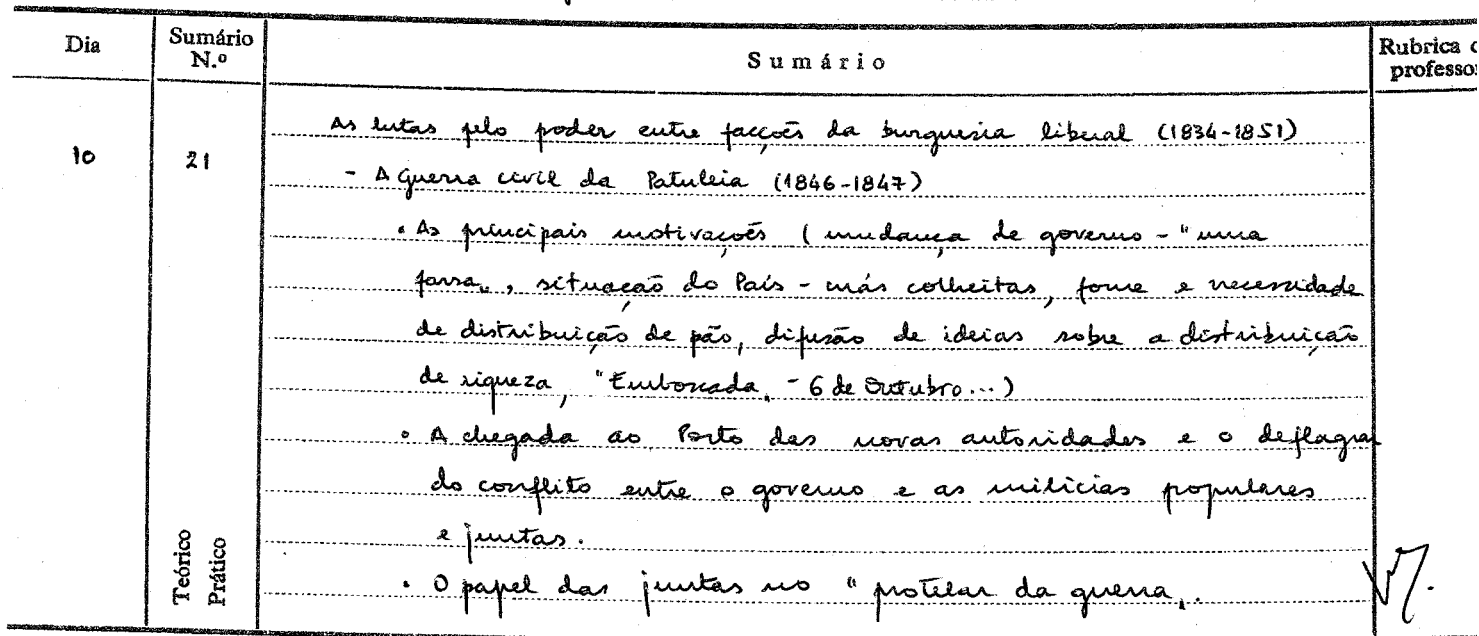 Dia Sumário N.º Sumário Rubrica professor
As lutas pelo poder entre facções da burguesia liberal (1834-1851)
10 21 - A guerra civil da Patuleia (1846-1847)
• As principais motivações (mudança de governo - "uma
farsa„, situação do País - más colheitas, fome e necessidade
de distribuição de pão, difusão de ideias sobre a distribuição
de riqueza, "Emboscada„ - 6 de Outubro...)
• A chegada ao Porto das novas autoridades e o deflagrar
do conflito entre o governo e as milícias populares
e juntas.
Teórico Prático
• O papel das juntas no "protelar da guerra„.